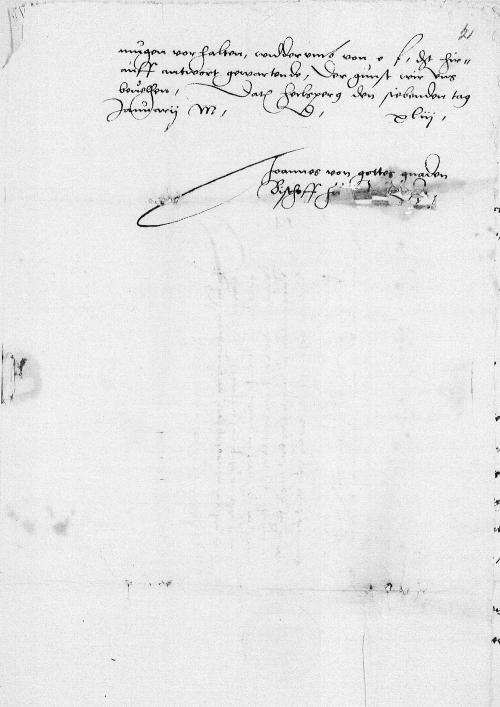 2
mugen vorhalten, widderumb von e f. dt hie=
auff antwort gewartende, der gunst wir uns
bevelhen, Datum heilsperg den siebenden tag
Januarij M, D, xliij,
Joannes von gottes gnaden
Bischoff zu